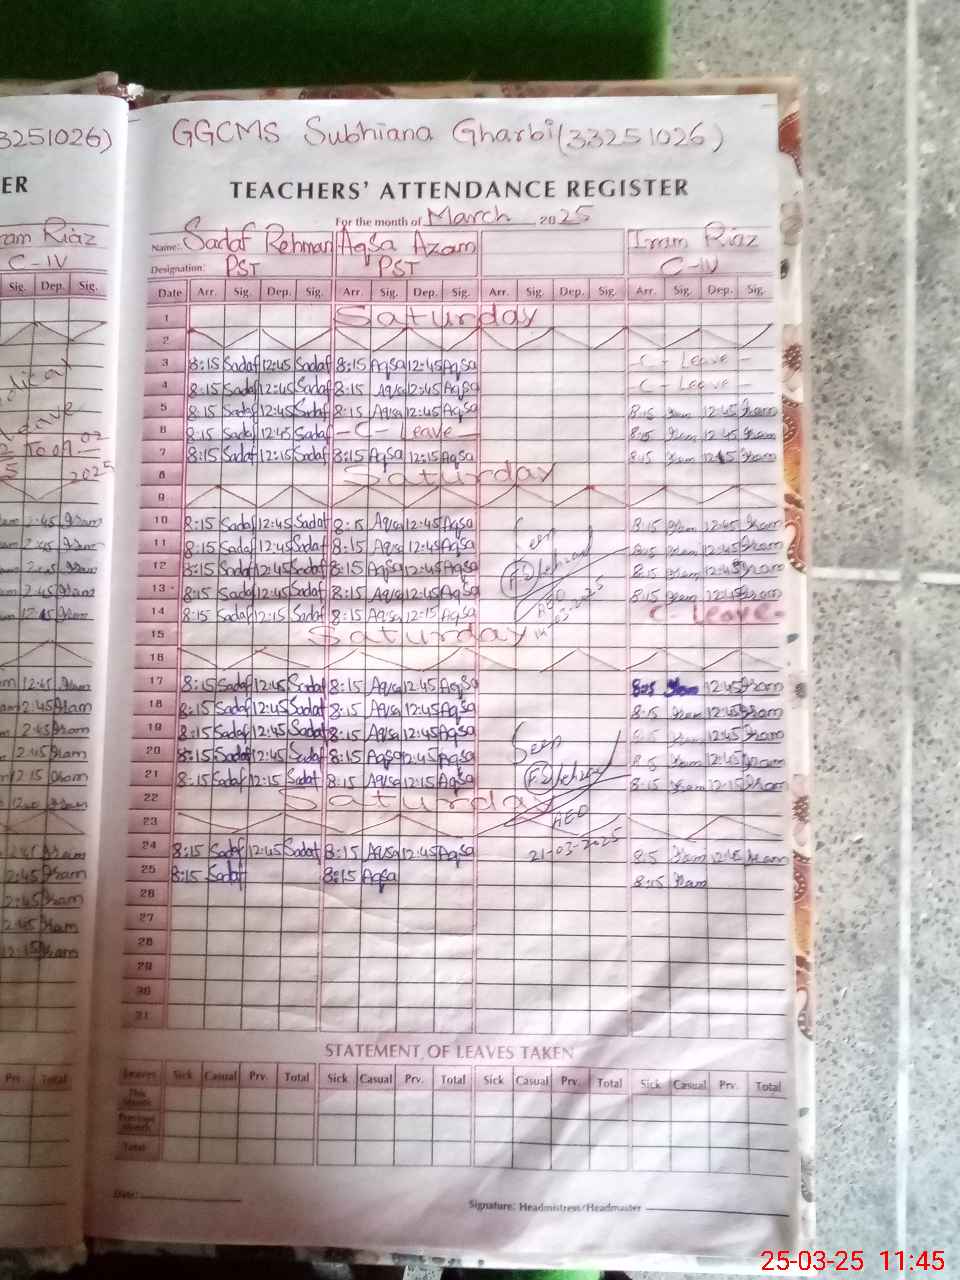 33251026)
GGCMS Subhiana Gharbi (33251026)
ER
TEACHERS' ATTENDANCE REGISTER
For the month of March 2025
Riaz
Name: Sadaf Rehman Aqsa Azam Iram Riaz
C-IV
Designation: PST PST C-IV
Sig. Dep. Sig.
Date Arr. Sig. Dep. Sig. Arr. Sig. Dep. Sig. Arr. Sig. Dep. Sig. Arr. Sig. Dep. Sig.
1 Saturday
2
3 8:15 Sadaf 12:45 Sadaf 8:15 Aqsa 12:45 Aqsa -C- Leave -
4 8:15 Sadaf 12:45 Sadaf 8:15 Aqsa 12:45 Aqsa -C- Leave -
5 8:15 Sadaf 12:45 Sadaf 8:15 Aqsa 12:45 Aqsa 8:15 Iram 12:45 Iram
6 8:15 Sadaf 12:45 Sadaf -C- Leave - 8:15 Iram 12:45 Iram
7 8:15 Sadaf 12:15 Sadaf 8:15 Aqsa 12:15 Aqsa 8:15 Iram 12:15 Iram
8 Saturday
9
10 8:15 Sadaf 12:45 Sadaf 8:15 Aqsa 12:45 Aqsa Seen 8:15 Iram 12:45 Iram
11 8:15 Sadaf 12:45 Sadaf 8:15 Aqsa 12:45 Aqsa 8:15 Iram 12:45 Iram
12 8:15 Sadaf 12:45 Sadaf 8:15 Aqsa 12:45 Aqsa 8:15 Iram 12:45 Iram
13 8:15 Sadaf 12:45 Sadaf 8:15 Aqsa 12:45 Aqsa AEO 8:15 Iram 12:45 Iram
14 8:15 Sadaf 12:15 Sadaf 8:15 Aqsa 12:15 Aqsa 14-03-2025 C- Leave -
15 Saturday
16
17 8:15 Sadaf 12:45 Sadaf 8:15 Aqsa 12:45 Aqsa 8:15 Iram 12:45 Iram
18 8:15 Sadaf 12:45 Sadaf 8:15 Aqsa 12:45 Aqsa 8:15 Iram 12:45 Iram
19 8:15 Sadaf 12:45 Sadaf 8:15 Aqsa 12:45 Aqsa Seen 8:15 Iram 12:45 Iram
20 8:15 Sadaf 12:45 Sadaf 8:15 Aqsa 12:45 Aqsa 8:15 Iram 12:45 Iram
21 8:15 Sadaf 12:15 Sadaf 8:15 Aqsa 12:15 Aqsa 8:15 Iram 12:15 Iram
22 Saturday
23 AEO
24 8:15 Sadaf 12:45 Sadaf 8:15 Aqsa 12:45 Aqsa 21-03-2025 8:15 Iram 12:45 Iram
25 8:15 Sadaf 8:15 Aqsa 8:15 Iram
26
27
28
29
30
31
STATEMENT OF LEAVES TAKEN
Prv. Total
Leaves Sick Casual Prv. Total Sick Casual Prv. Total Sick Casual Prv. Total Sick Casual Prv. Total
This Month
Previous Month
Total
Date:
Signature: Headmistress/Headmaster
25-03-25 11:45